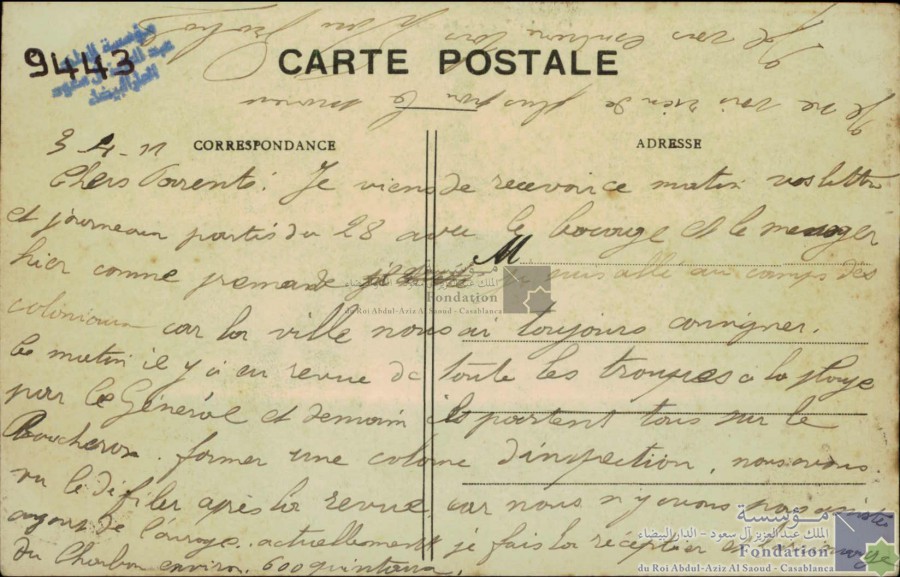 9443
مؤسسة الملك
عبد العزيز آل سعود
الدار البيضاء
CARTE POSTALE
CORRESPONDANCE
ADRESSE
3-4-11
Chers Parents! Je viens de recevoir ce matin vos lettre
et journeaux partis du 28 avec le bocage et le messager
hier comme promenade je suis allé au camps des
coloniaux car la ville nous ai toujours consigner.
Ce matin il y a eu revue de toute les troupes a la plage
par le Général et demain ils partent tous sur le
Boucheron. former une colone d'inspection, nous avons
vu le défiler après la revue, car nous n'y avons pas assister
ayant de l'ouvrage. actuellement je fais la réception
du Charbon environ 600 quintaux,
Je ne vois rien de plus pour le
Je vous
M
مؤسسة
الملك عبد العزيز آل سعود - الدار البيضاء
Fondation
du Roi Abdul-Aziz Al Saoud - Casablanca
مؤسسة
الملك عبد العزيز آل سعود - الدار البيضاء
Fondation
du Roi Abdul-Aziz Al Saoud - Casablanca